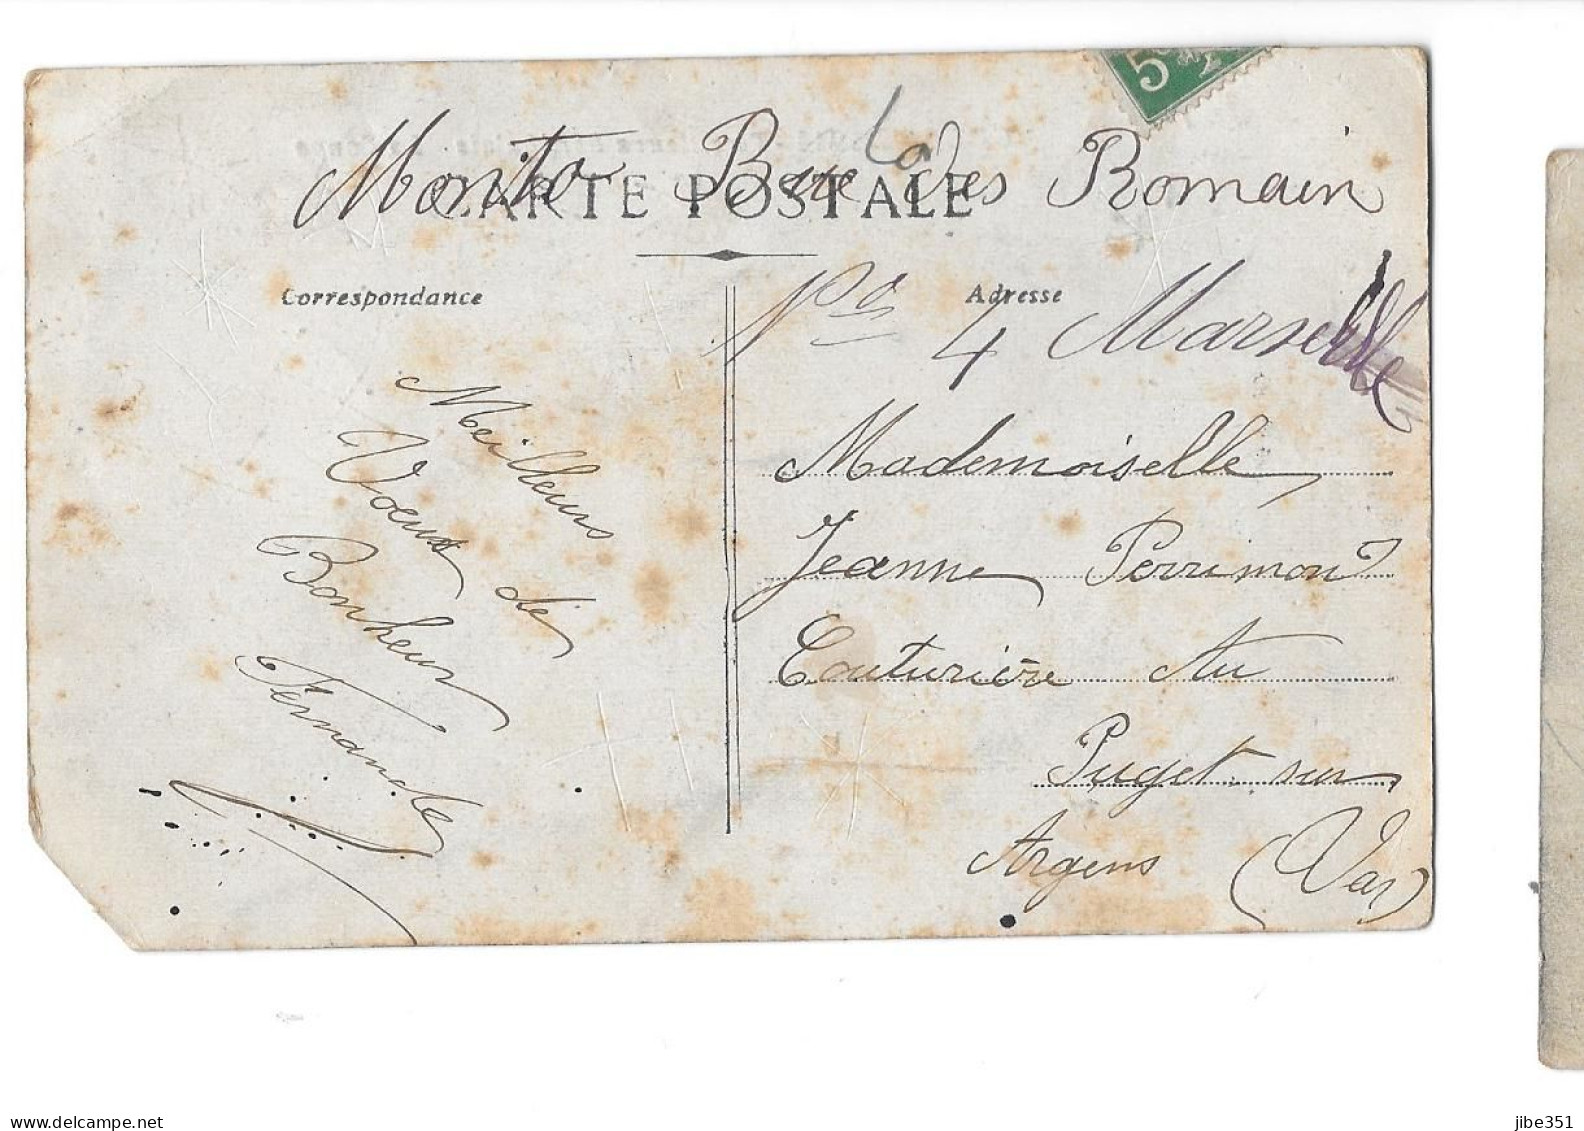 5
La
Rue des Romain
CARTE POSTALE
Correspondance
Adresse
4 Marseille
Meilleurs
Voeux de
Bonheur
Fernande
Mademoiselle
Jeanne Perrimond
Couturière Au
Puget sur
Argens (Var)
www.delcampe.net
jibe351